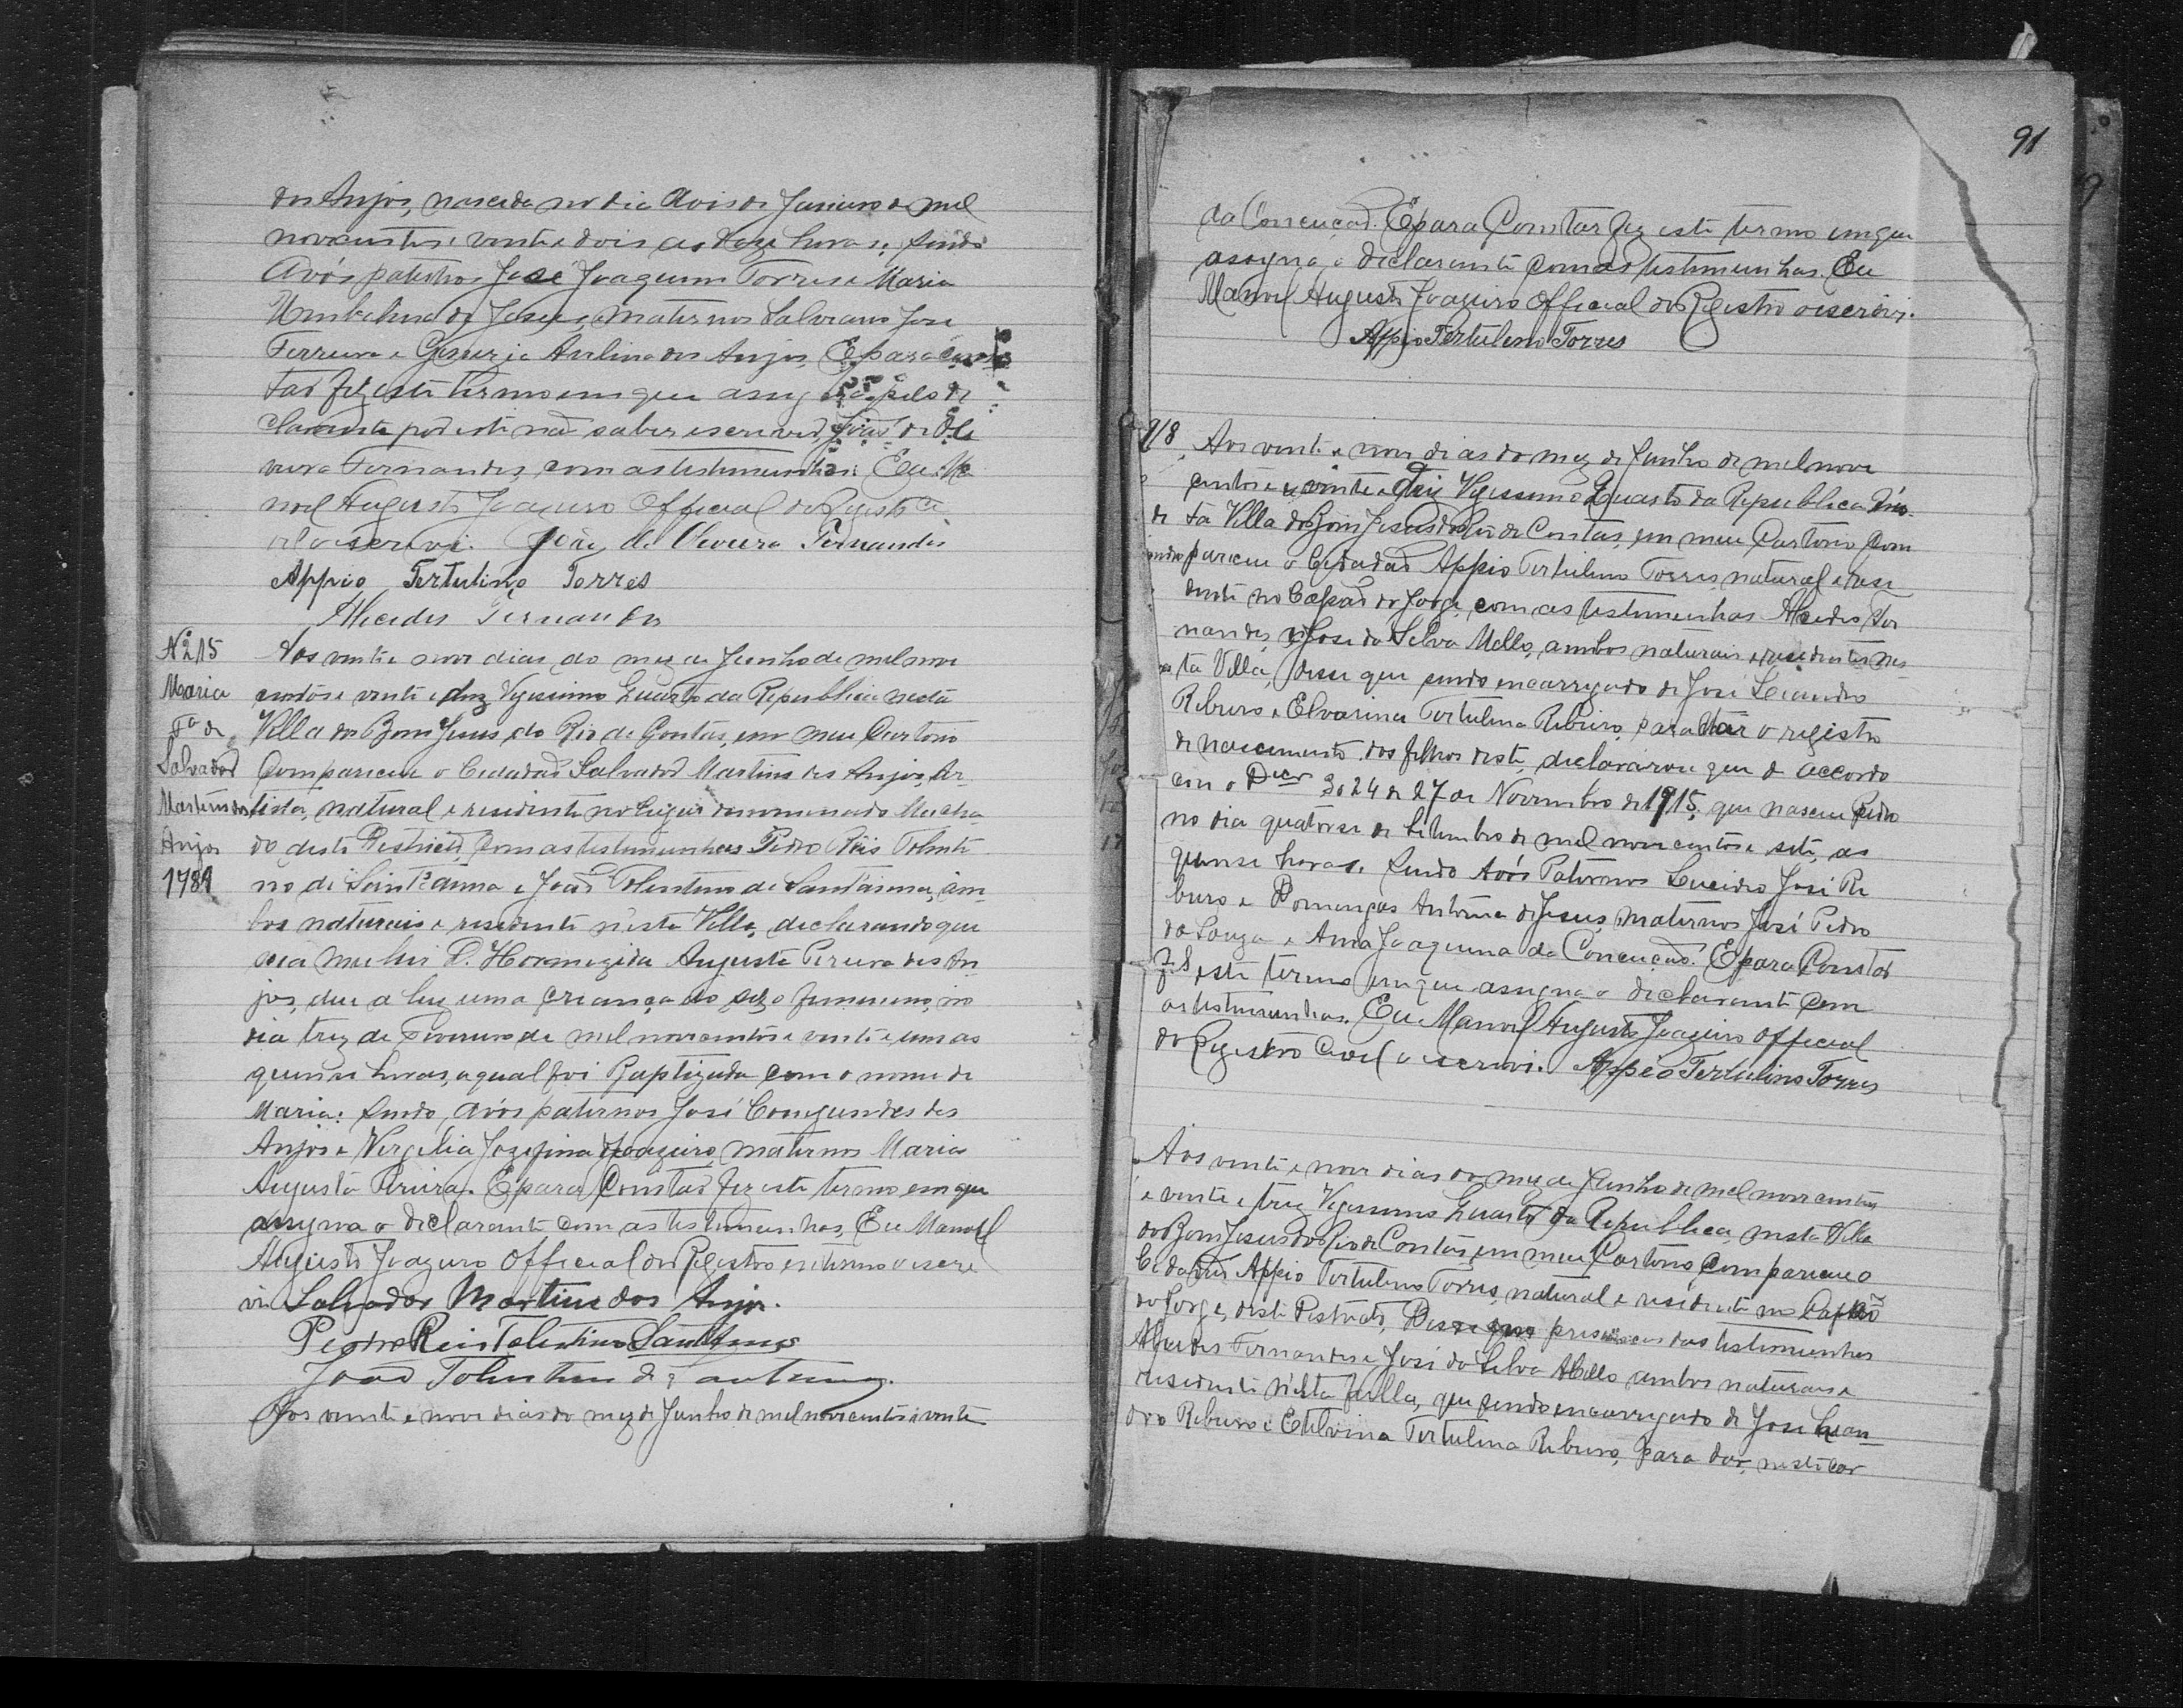 dos Anjos, nascida no dia dois de Janeiro de mil
novecentos e vinte e dois as doze horas; sendo
Avós paternos José Joaquim Torres e Maria
Umbelina de Jesus, maternos Salviano José
Ferreira e Avelina dos Anjos. E para cons
tar fiz este termo em que assigna pelo de
clarante por este não saber escrever, João de Oli
veira Fernandes, com as testimunhas. Eu Ma
noel Augusto Joazeiro Official do Registro Ci
vil o escrevi. João de Oliveira Fernandes
Appio Tertulino Torres
Alcides Fernandes
Nº 215
Maria
Fª de
Salvador
Martins dos
Anjos
1789
Aos vinte e nove dias do mez de Junho de mil nove
centos e vinte e trez Vigessimo Quarto da Republica nesta
Villa do Bom Jesus do Rio de Contas, em meu Cartorio
Compareceu o Cidadão Salvador Martins dos Anjos, Ar-
tista, natural e residente no lugar denominado Machado
do deste Destricto, com as testimunhas Pedro Reis Tolenti
no de Sant'Anna e João Tolentino de Sant'anna, am-
bos naturais e residente n'esta Villa, declarando que
sua mulher D. Hormezida Augusta Pereira dos An-
jos, deu a luz uma criança do sexo femenino, no
dia trez de Fevereiro de mil novecentos e vinte e um as
quinse horas, a qual foi Baptizada com o nome de
Maria: sendo, avós paternos José Congundes dos
Anjos e Vergilia Jozefina Joazeiro, maternos Maria
Augusta Pereira. E para Constar fiz este termo em que
assigna o declarante com as testimunhas, Eu Manoel
Augusto Joazeiro Official do Registro interino o escre
vi. Salvador Martins dos Anjos.
Pedro Reis Tolentino SantAnna
João Tolentino de Santanna.
Aos vinte e nove dias do mez de Junho de mil novecentos e vinte
91
da Conceição. E para Constar fiz este termo em que
assigna o declarante com as testimunhas. Eu
Manoel Augusto Joazeiro Official do Registro o escrevi.
Appio Tertulino Torres
218
Aos vinte e nove dias do mez de Junho de mil nove
centos e vinte e trez Vigessimo Quarto da Republica nes-
ta Villa do Bom Jesus do Rio de Contas, em meu Cartorio com
pareceu o Cidadão Appio Tertulino Torres, natural e resi
dente no Capão do Jorge, com as testimunhas Alcides Fer
nandes, e José da Silva Mello, ambos naturais e residentes nes
ta Villa, disse que sendo encarregado de José Leandro
Ribeiro e Etelvina Tertulina Ribeiro, para dar o registro
de nascimento dos filhos deste, declararou que de accordo
com o Decr 3024 de 27 de Novembro de 1915, que nasceu Pedro
no dia quatorse de Setembro de mil novecentos e sete, as
quinse horas. Sendo Avós Paternos Lucidio José Ri
beiro e Domingas Antonia de Jesus, maternos José Pedro
de Souza e Anna Joaquina da Conceição. E para Constar
fiz este termo em que assigna o declarante com
as testimunhas. Eu Manoel Augusto Joazeiro Official
do Registro Civil o escrevi. Appio Tertulino Torres
Aos vinte e nove dias do mez de Junho de mil novecentos
e vinte e trez Vigessimo Quarto da Republica, nesta Villa
do Bom Jesus do Rio de Contas, em meu Cartorio, compareceu o
Cidadão Appio Tertulino Torres, natural e residente no Capão
do Jorge, deste Destricto, Disse que presença das testimunhas
Alcides Fernandes e José da Silva Mello ambos naturais e
residente n'esta Villa, que sendo encarregado de José Lean-
dro Ribeiro e Etelvina Tertulina Ribeiro, para dar, neste Car